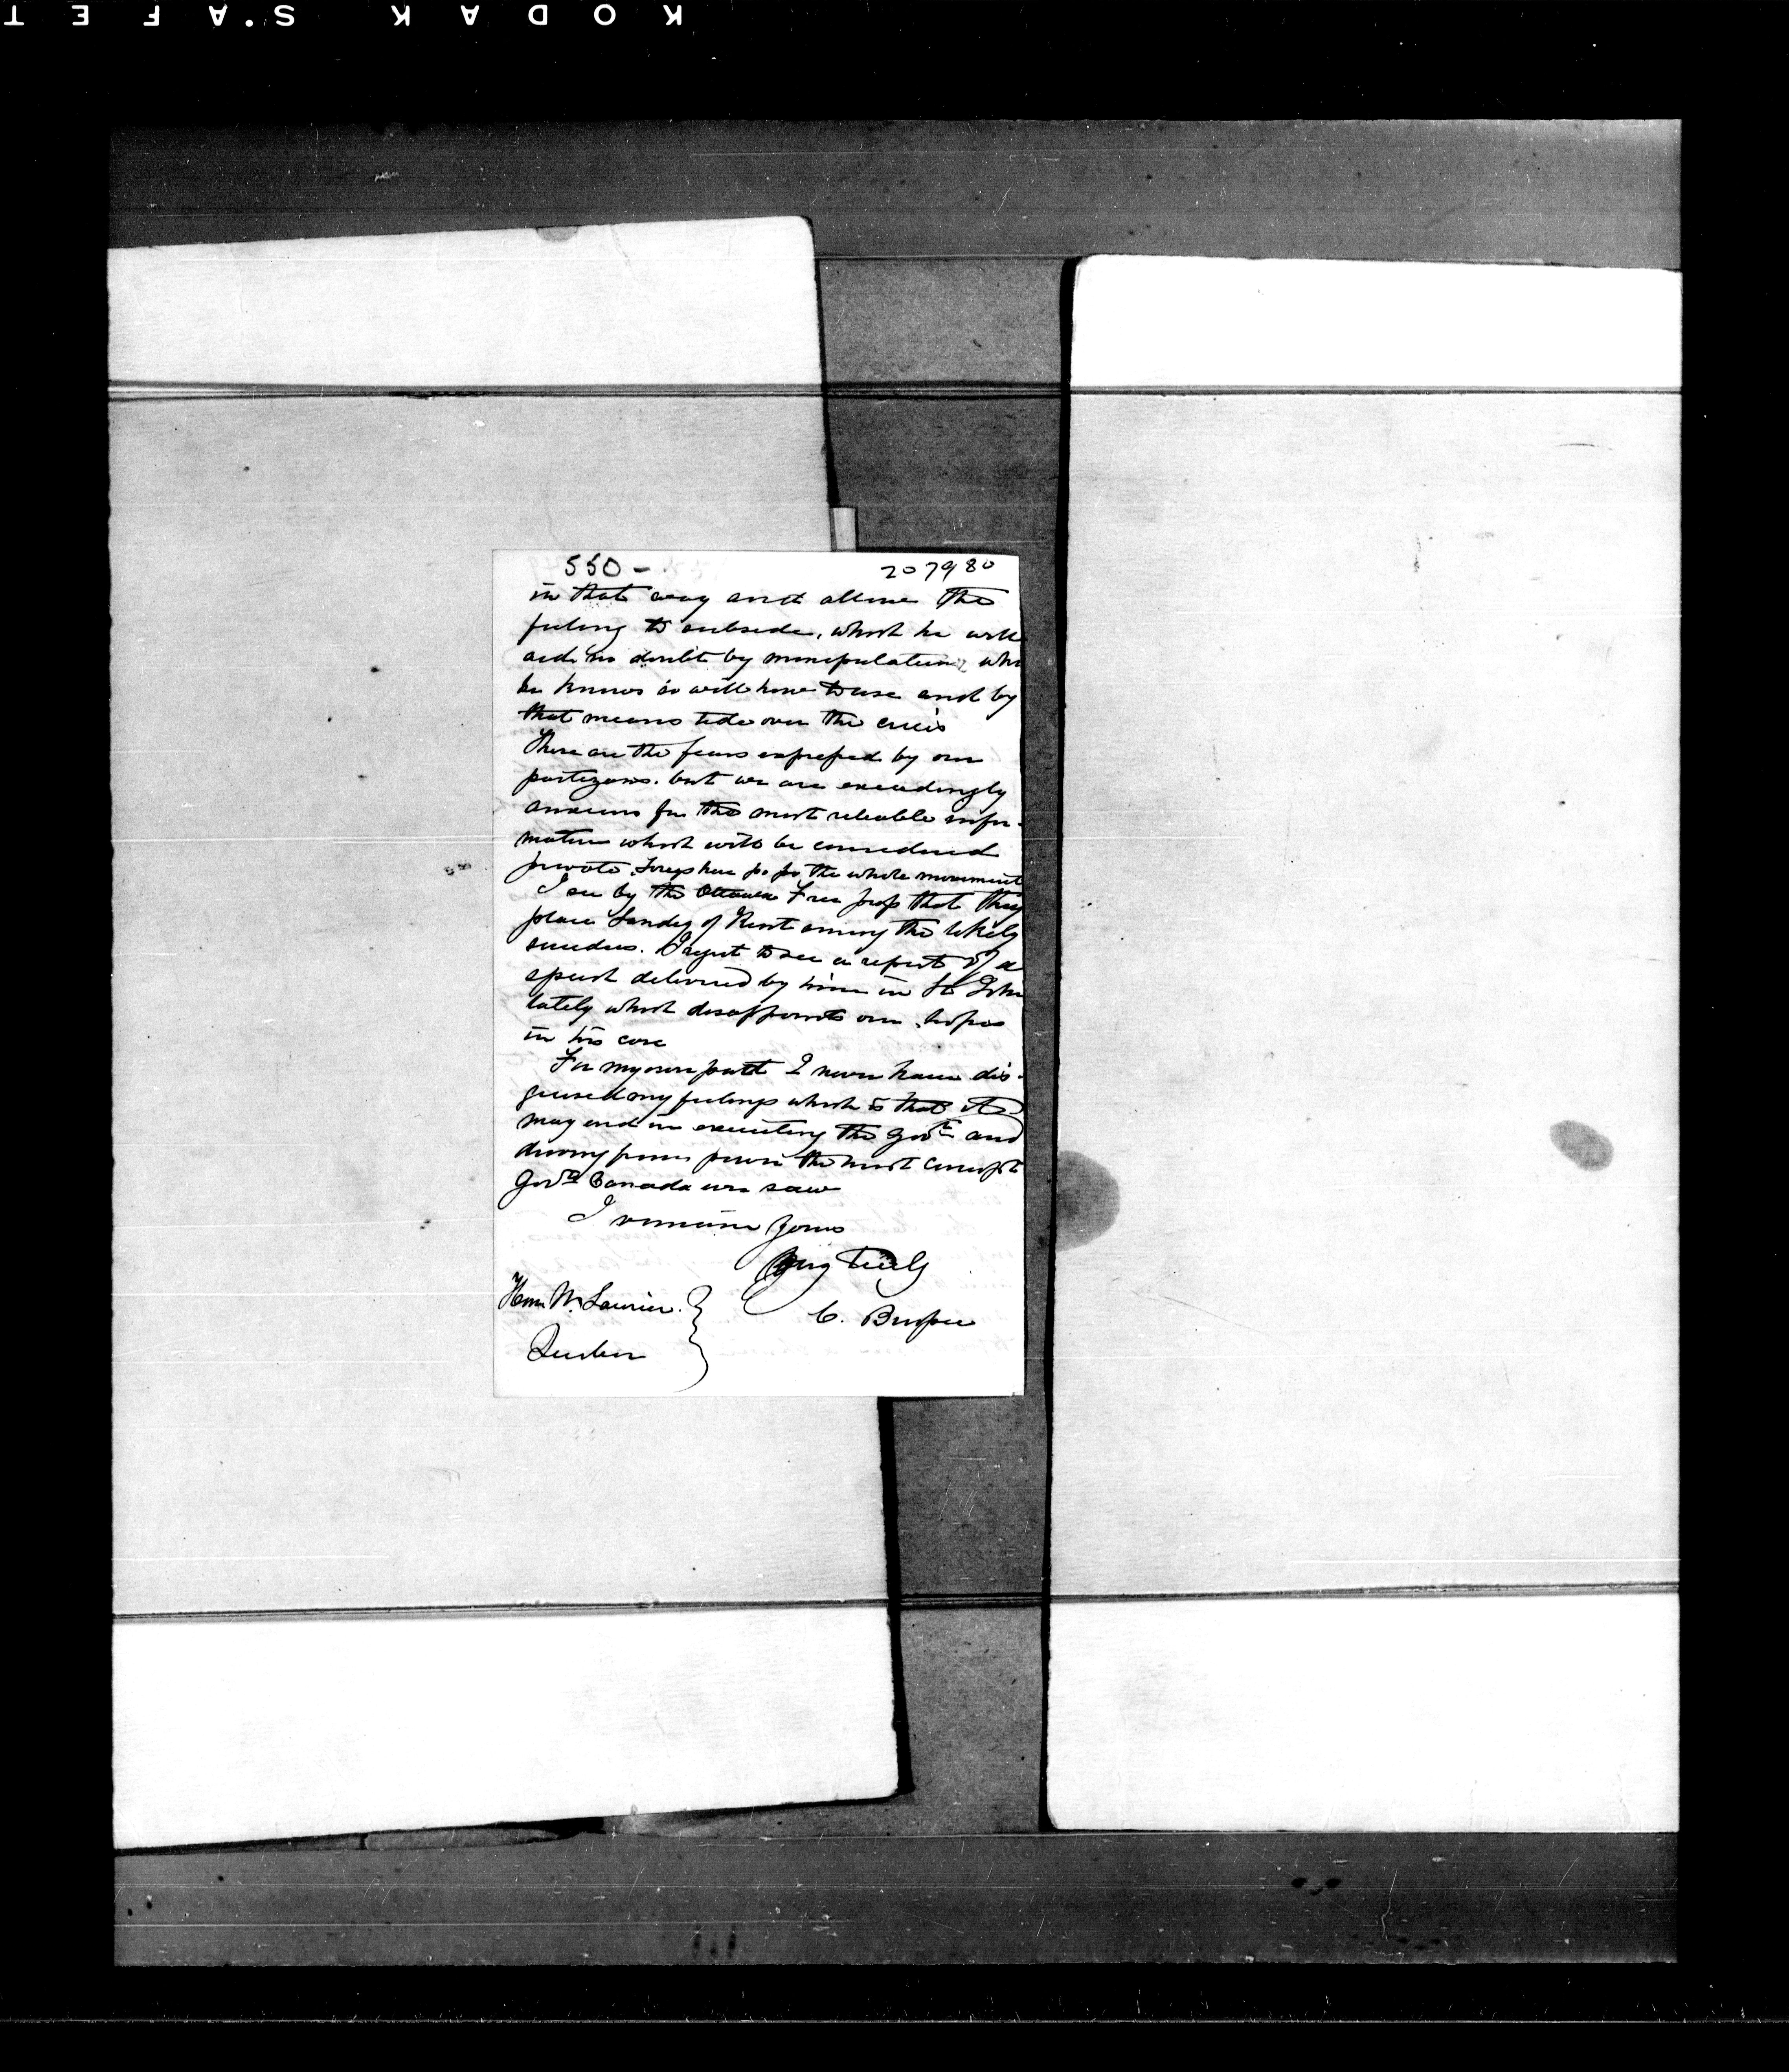 KODAK S.AFET
550 - 207980
in that way and allow the
feeling to subside, which he will
aid no doubt by manipulation, whi
he knows so well how to use and by
that means tide over the crisis
These are the fears expressed by our
partizans. but we are exceedingly
anxious for the most reliable infor-
mation which will be considered
private. the whole movement
I see by the Ottawa Free press that they
place Landry of Kent among the likely
seceders. I regret to see a report of a
speech delivered by him in St John
lately which disappoints our hopes
in his case
For my own part I never have dis-
guised my feelings which is that it
may end in executing the Govt and
driving from power the most corrupt
Govt Canada ever saw
I remain yours
Very Truly
C. Burpee
Hon W. Laurier.
Quebec